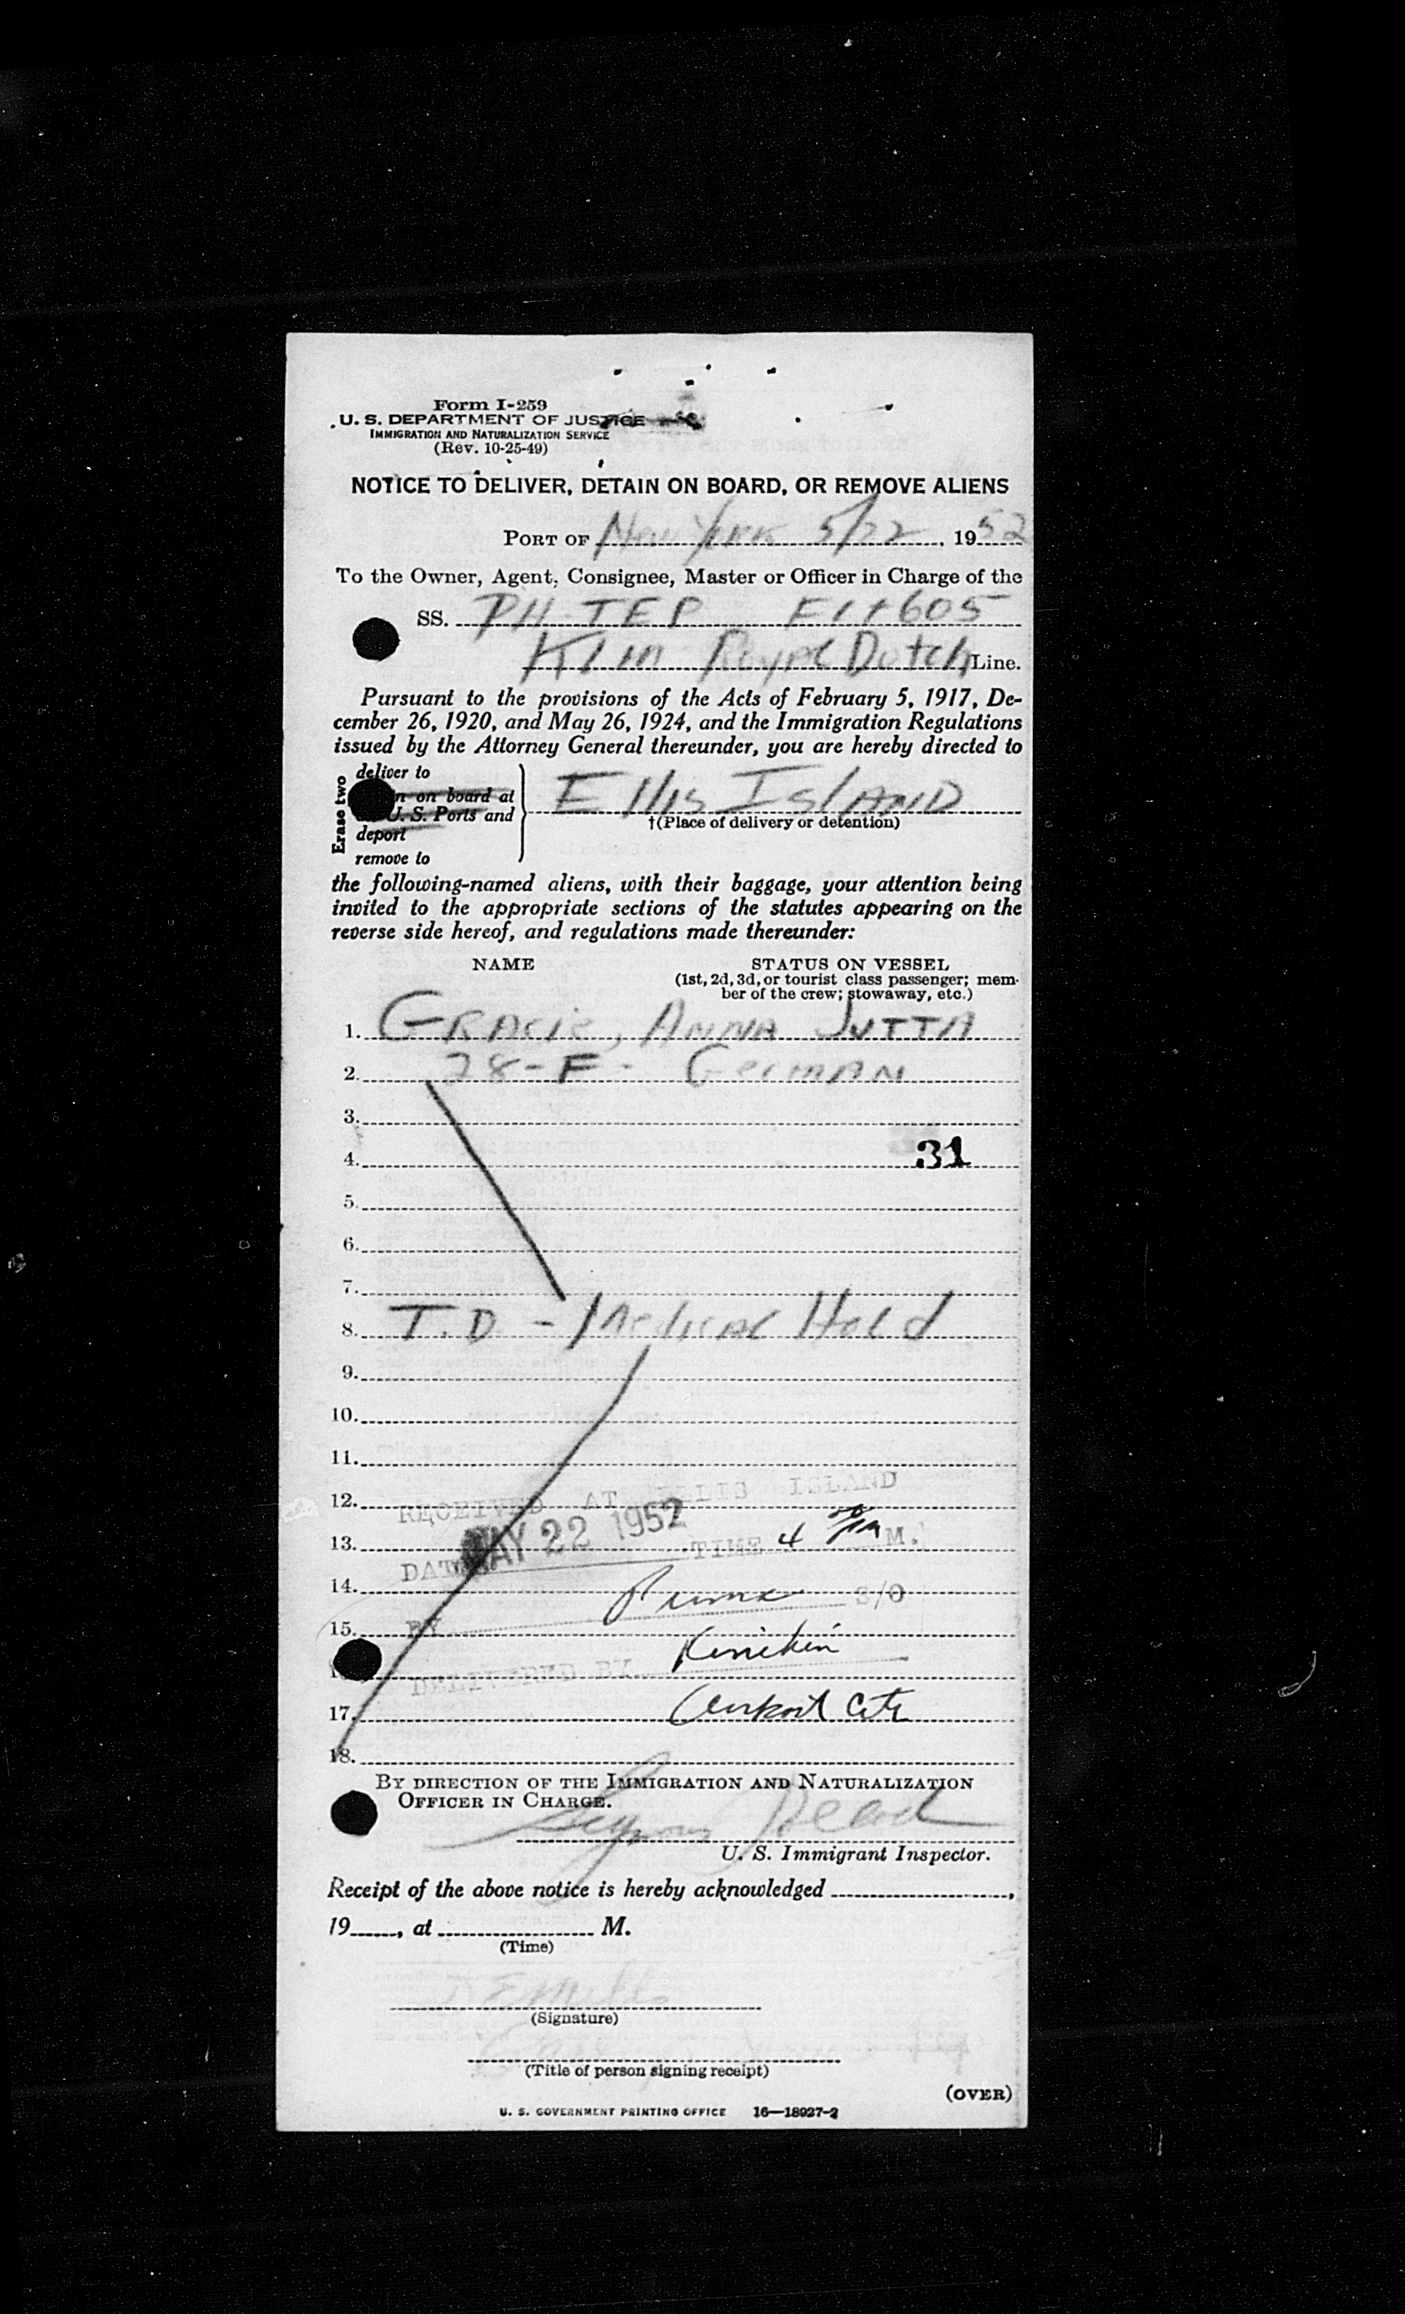 Form I-259
U. S. DEPARTMENT OF JUSTICE
IMMIGRATION AND NATURALIZATION SERVICE
(Rev. 10-25-49)
NOTICE TO DELIVER, DETAIN ON BOARD, OR REMOVE ALIENS
PORT OF New York 5/22, 1952
To the Owner, Agent, Consignee, Master or Officer in Charge of the
SS. PH-TEP Flt 605
Klm Royal Dutch Line.
Pursuant to the provisions of the Acts of February 5, 1917, De-
cember 26, 1920, and May 26, 1924, and the Immigration Regulations
issued by the Attorney General thereunder, you are hereby directed to
Erase two
deliver to
on board at
U. S. Ports and
deport
remove to
Ellis ISLAND
†(Place of delivery or detention)
the following-named aliens, with their baggage, your attention being
invited to the appropriate sections of the statutes appearing on the
reverse side hereof, and regulations made thereunder:
NAME STATUS ON VESSEL
(1st, 2d, 3d, or tourist class passenger; mem-
ber of the crew; stowaway, etc.)
1. GRACIE, ANNA JUTTA
2. 28-F- GerMAN
3.
4. 31
5.
6.
7.
8. T.D - Medical Hold
9.
10.
11.
12. RECEIVED AT ELLIS ISLAND
13. DATE MAY 22 1952 TIME 4 PM M.
14. S/O
15. BY
DELIVERED BY
17. Airport
18.
BY DIRECTION OF THE IMMIGRATION AND NATURALIZATION
OFFICER IN CHARGE.
Seymour
U. S. Immigrant Inspector.
Receipt of the above notice is hereby acknowledged ,
19 , at M.
(Time)
(Signature)
(Title of person signing receipt)
(OVER)
U. S. GOVERNMENT PRINTING OFFICE 16—18927-2